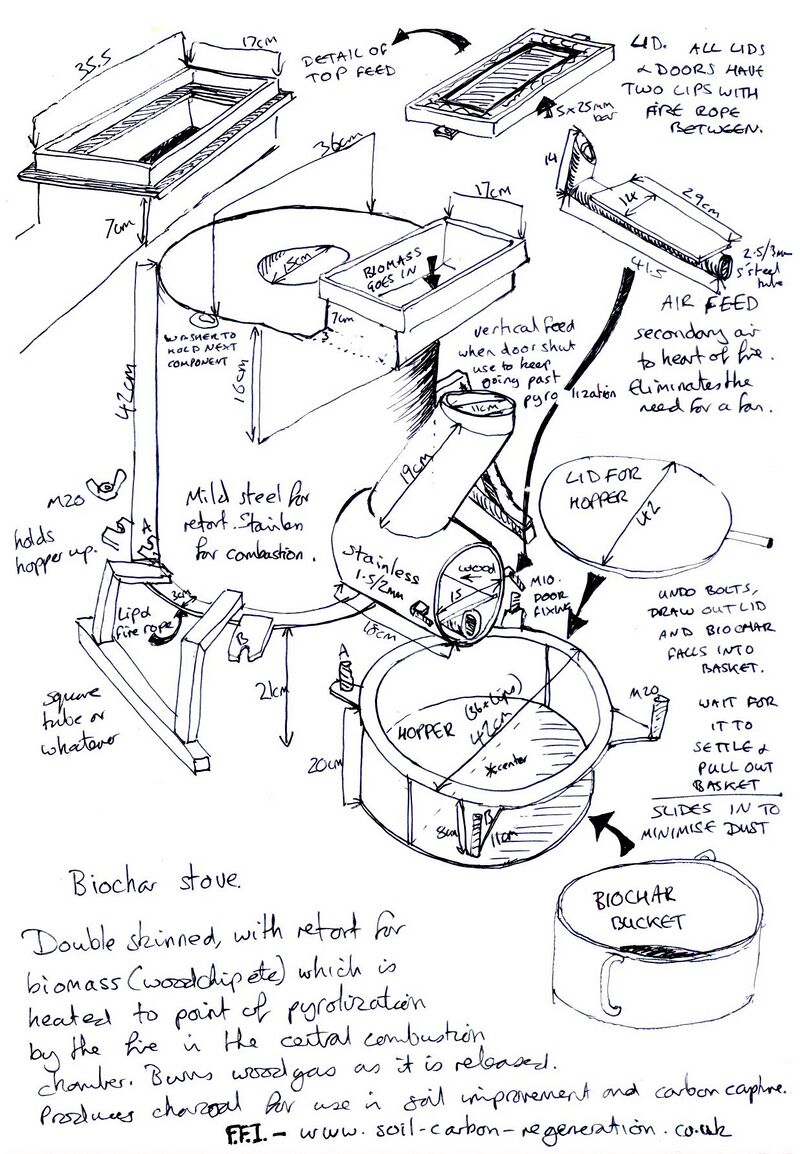 35.5
17cm
7cm
DETAIL OF
TOP FEED
LID. ALL LIDS
& DOORS HAVE
TWO LIPS WITH
FIRE ROPE
BETWEEN.
5x25mm
bar
36cm
15cm
17cm
BIOMASS
GOES IN
7cm
WASHER TO
HOLD NEXT
COMPONENT
42cm
16cm
14
14
29cm
41.5
2.5/3mm
S'steel
tube
AIR FEED
secondary air
to heart of fire.
Eliminates the
need for a fan.
vertical feed
when door shut
use to keep
going past
pyrolization
11cm
19cm
LID FOR
HOPPER
42
M20
holds
hopper up.
A
Mild steel for
retort. Stainless
for combustion.
Stainless
1.5/2mm
wood
15
18cm
M10.
DOOR
FIXING
3cm
Lip &
fire rope
B
square
tube or
whatever
21cm
UNDO BOLTS,
DRAW OUT LID
AND BIOCHAR
FALLS INTO
BASKET.
WAIT FOR
IT TO
SETTLE &
PULL OUT
BASKET
SLIDES IN TO
MINIMISE DUST
A
M20
HOPPER
(36+lips)
42cm
*center
20cm
8cm
B
11cm
BIOCHAR
BUCKET
Biochar stove.
Double skinned, with retort for
biomass (woodchip etc) which is
heated to point of pyrolization
by the fire in the central combustion
chamber. Burns woodgas as it is released.
Produces charcoal for use in soil improvement and carbon capture.
F.F.I. - www.soil-carbon-regeneration.co.uk